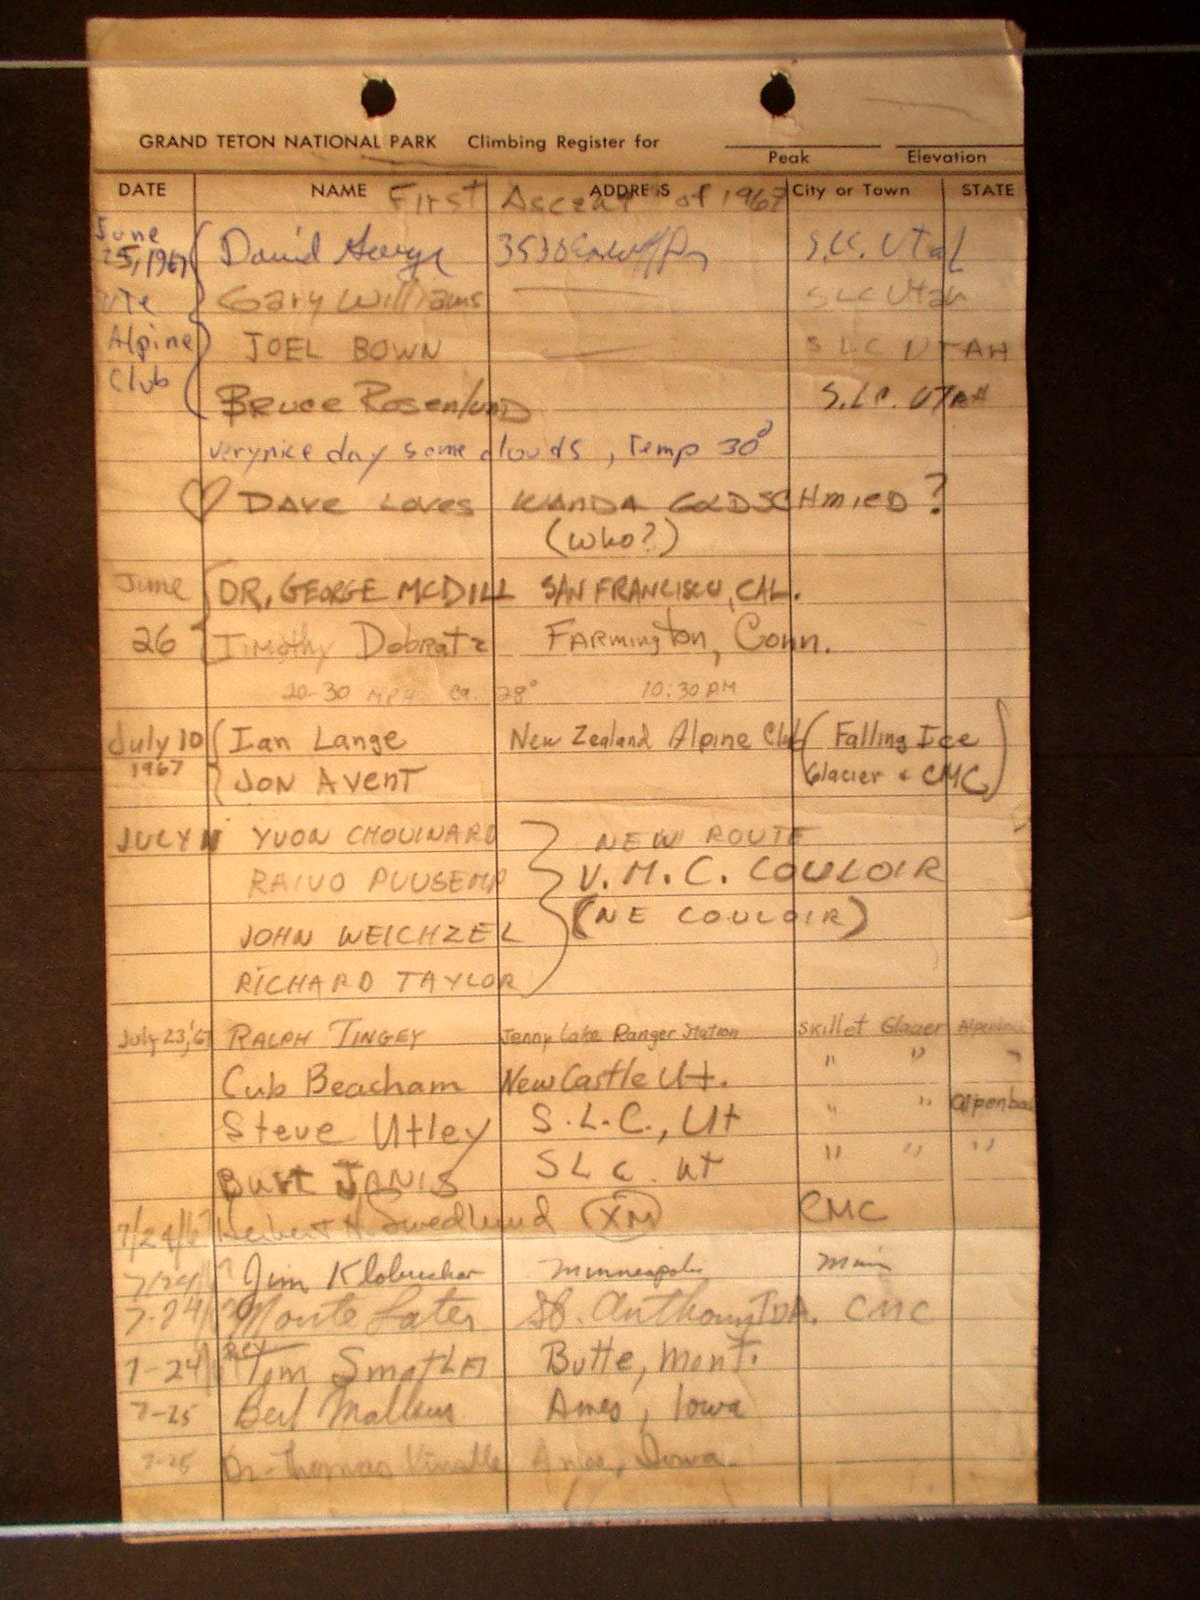 GRAND TETON NATIONAL PARK Climbing Register for
Peak Elevation
DATE NAME ADDRESS City or Town STATE
First Ascent of 1967
June 25, 1967 David George 3530 S.L.C. Utah
Ute Gary Williams SLC Utah
Alpine JOEL BOWN SLC UTAH
Club Bruce Rosenlund S.L.C. UTAH
very nice day some clouds, Temp 30°
♡ DAVE LOVES WANDA GOLDSCHMIED?
(who?)
June DR. GEORGE MCDILL SAN FRANCISCO, CAL.
26 Timothy Dobratz FARmington, Conn.
20-30 MPH ca 28° 10:30 AM
July 10 Ian Lange New Zealand Alpine Club (Falling Ice
1967 JON AVENT Glacier & CMC)
JULY 11 YVON CHOUINARD NEW ROUTE
RAIVO PUUSEMP V.M.C. COULOIR
JOHN WEICHZEL (NE COULOIR)
RICHARD TAYLOR
July 23, '67 RALPH TINGEY Jenny Lake Ranger Station Skillet Glacier Alpenbock
Cub Beacham NewCastle Ut. " " "
Steve Utley S.L.C., Ut " " Alpenbock
BURT JANIS SLC. Ut " " "
7/24/67 Herbert H. Swedlund XM CMC
7/24/ Jim Klobuchar Minneapolis Minn
7-24/ Monte Later St. Anthony IDA. CMC
7-24/ Rev Tom Butte, Mont.
7-25 Ames, Iowa
7-25 Dr. Thomas Ames, Iowa.